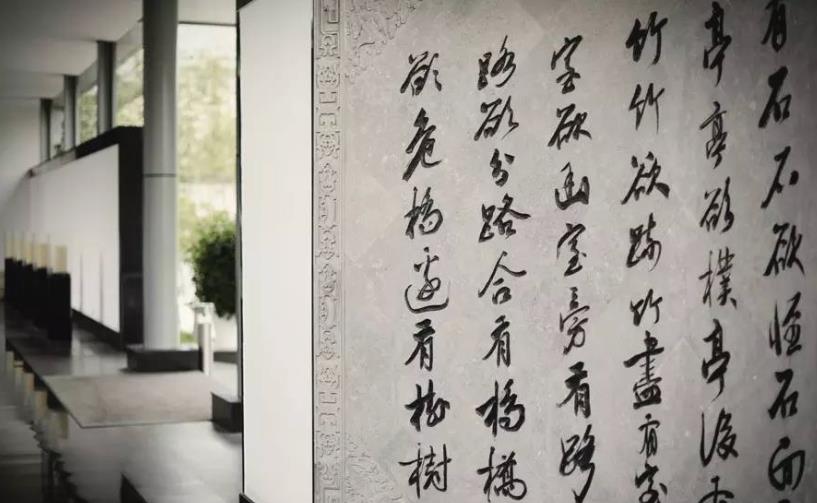 有石石欲怪石面
亭亭欲樸亭後有
竹竹欲疎竹盡有室
室欲幽室旁有路
路欲分路合有橋橋
欲危橋邊有樹樹